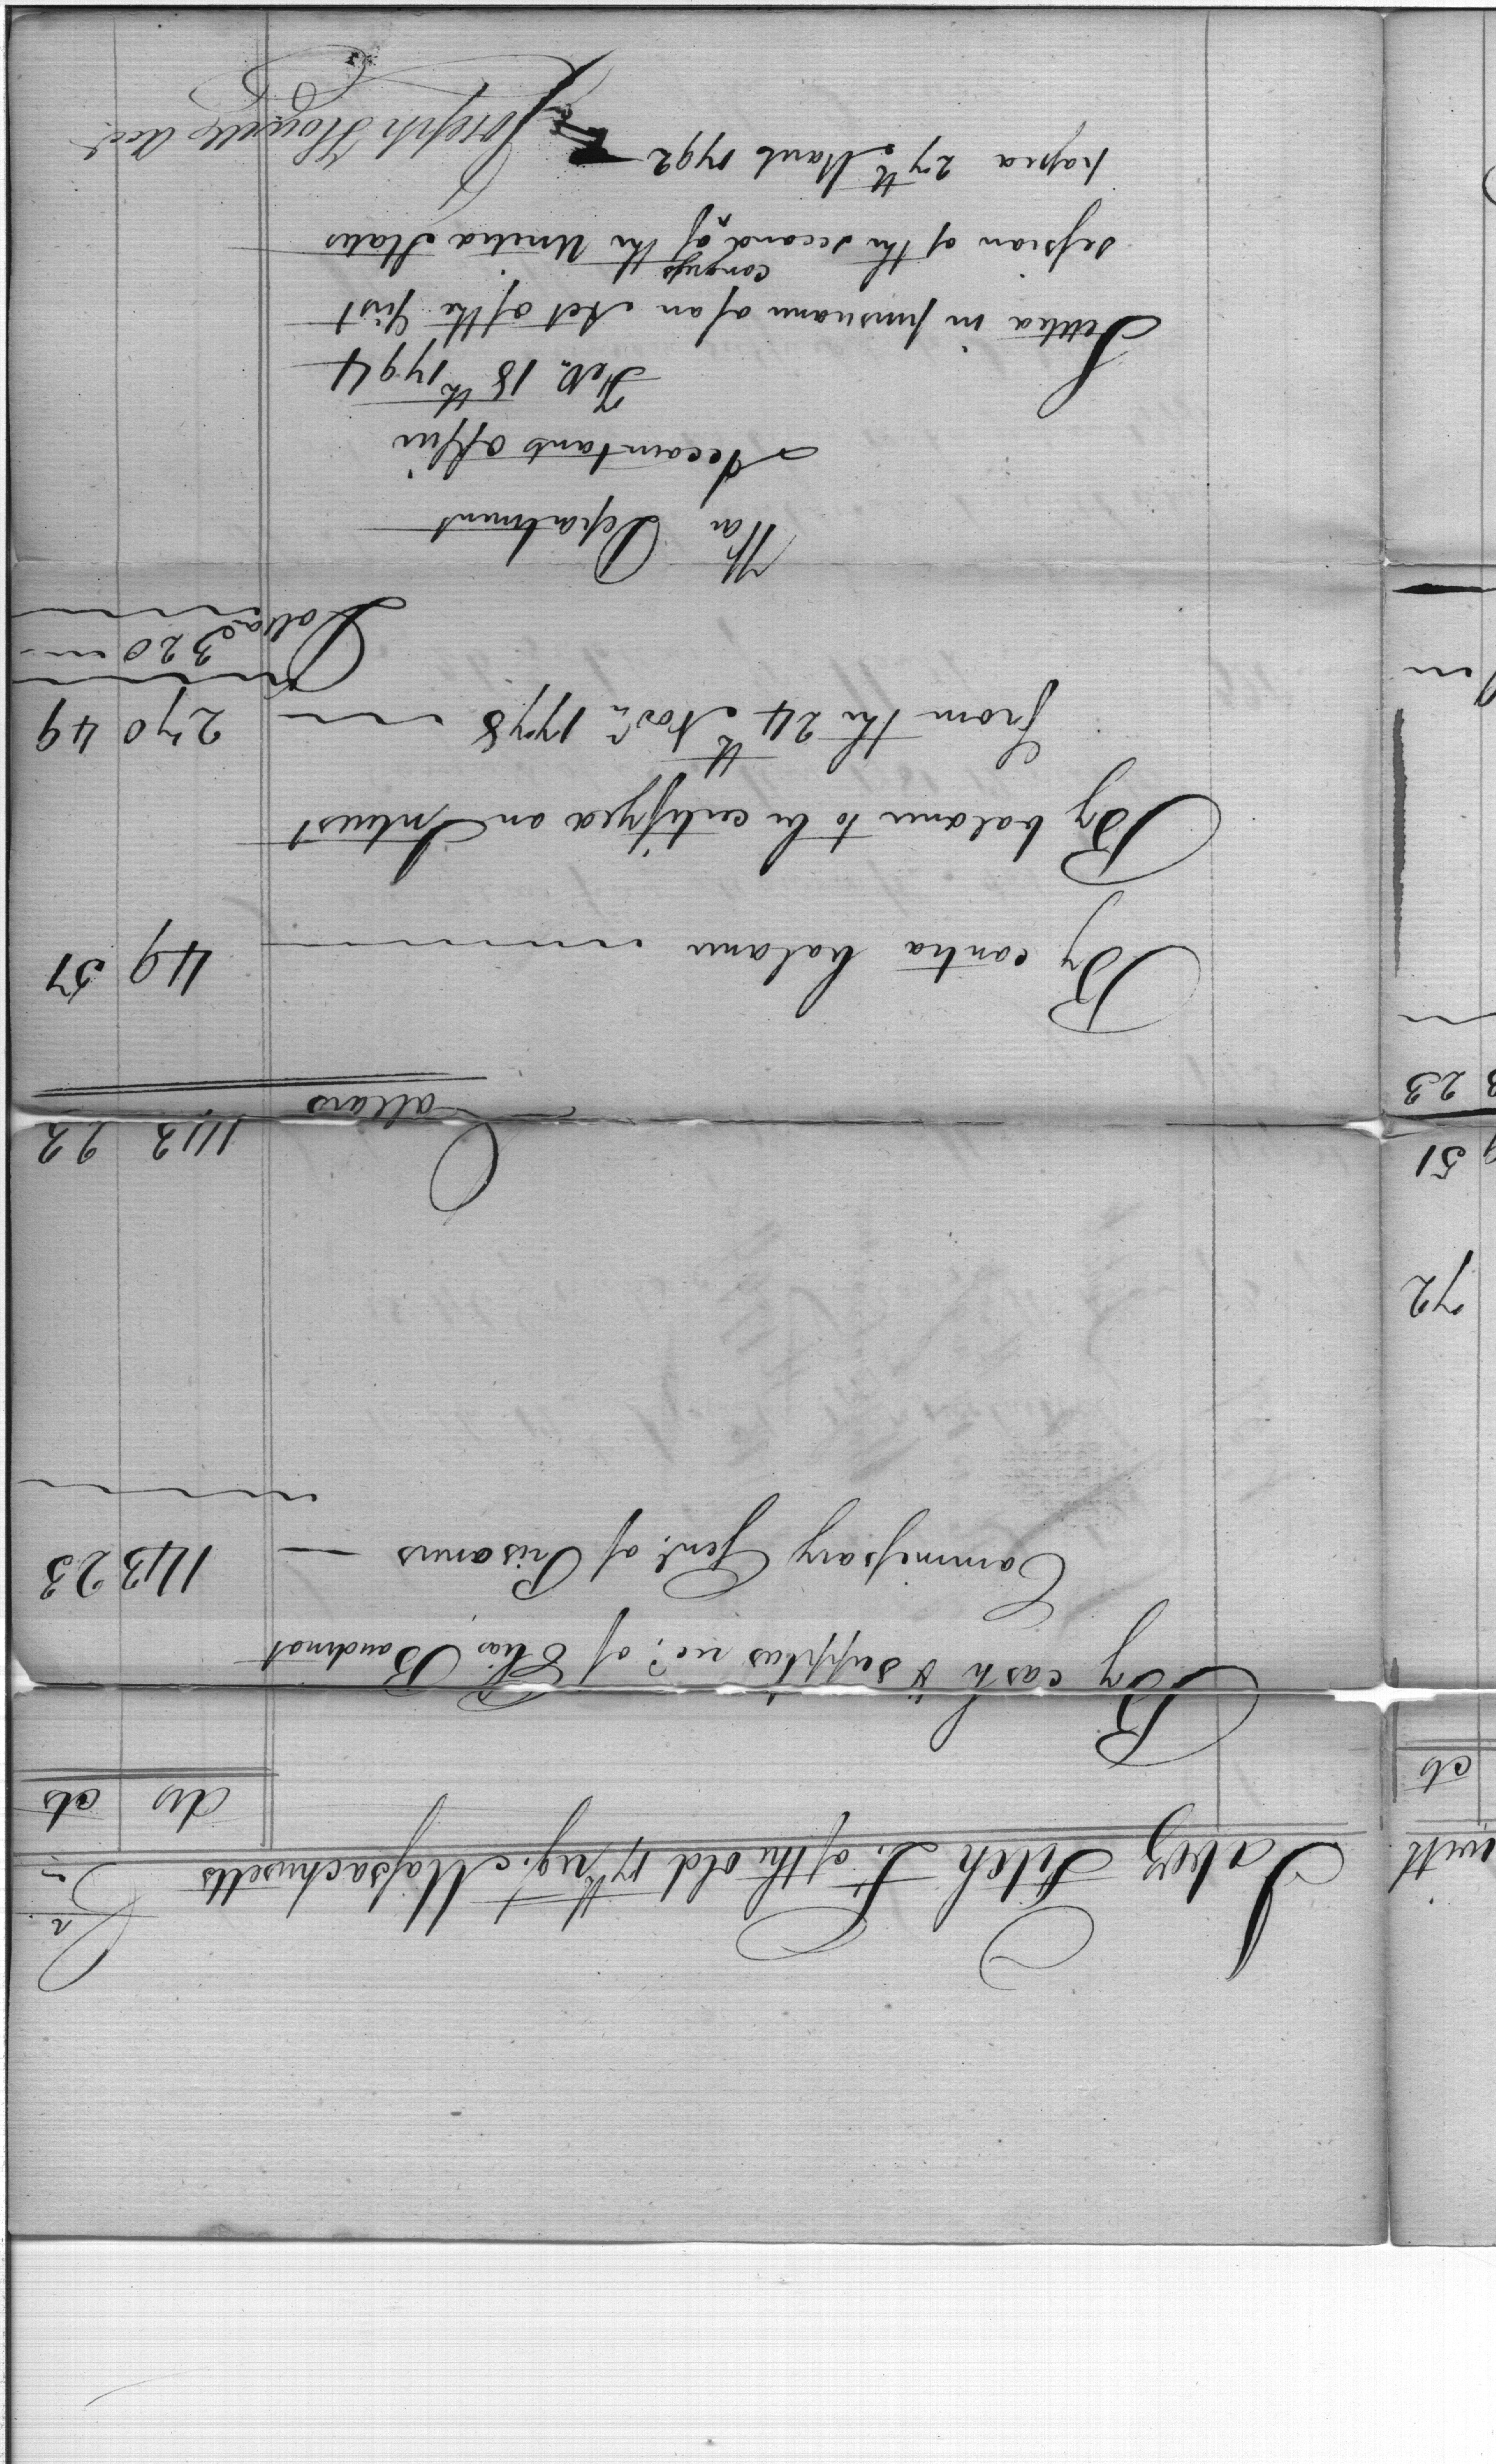 Jabez Fitch Lt. of the old 17th regt. Massachusetts Cr
ds cts
By cash & supplies recd. of Elias Boudinot
Commissary Genl. of Prisoners — 143 23
Dollars 143 23
By contra balance 49 51
By balance to be certifyed on Interest
from the 24th Novr. 1778 270 49
Dollars 320
War Department
Accountants office
Feb. 18th 1794
Settled in pursuance of an Act of the first
session of the second congress of the United States
passed 27th March 1792
Joseph Howell Acct.
with
ct
72
51
3 23